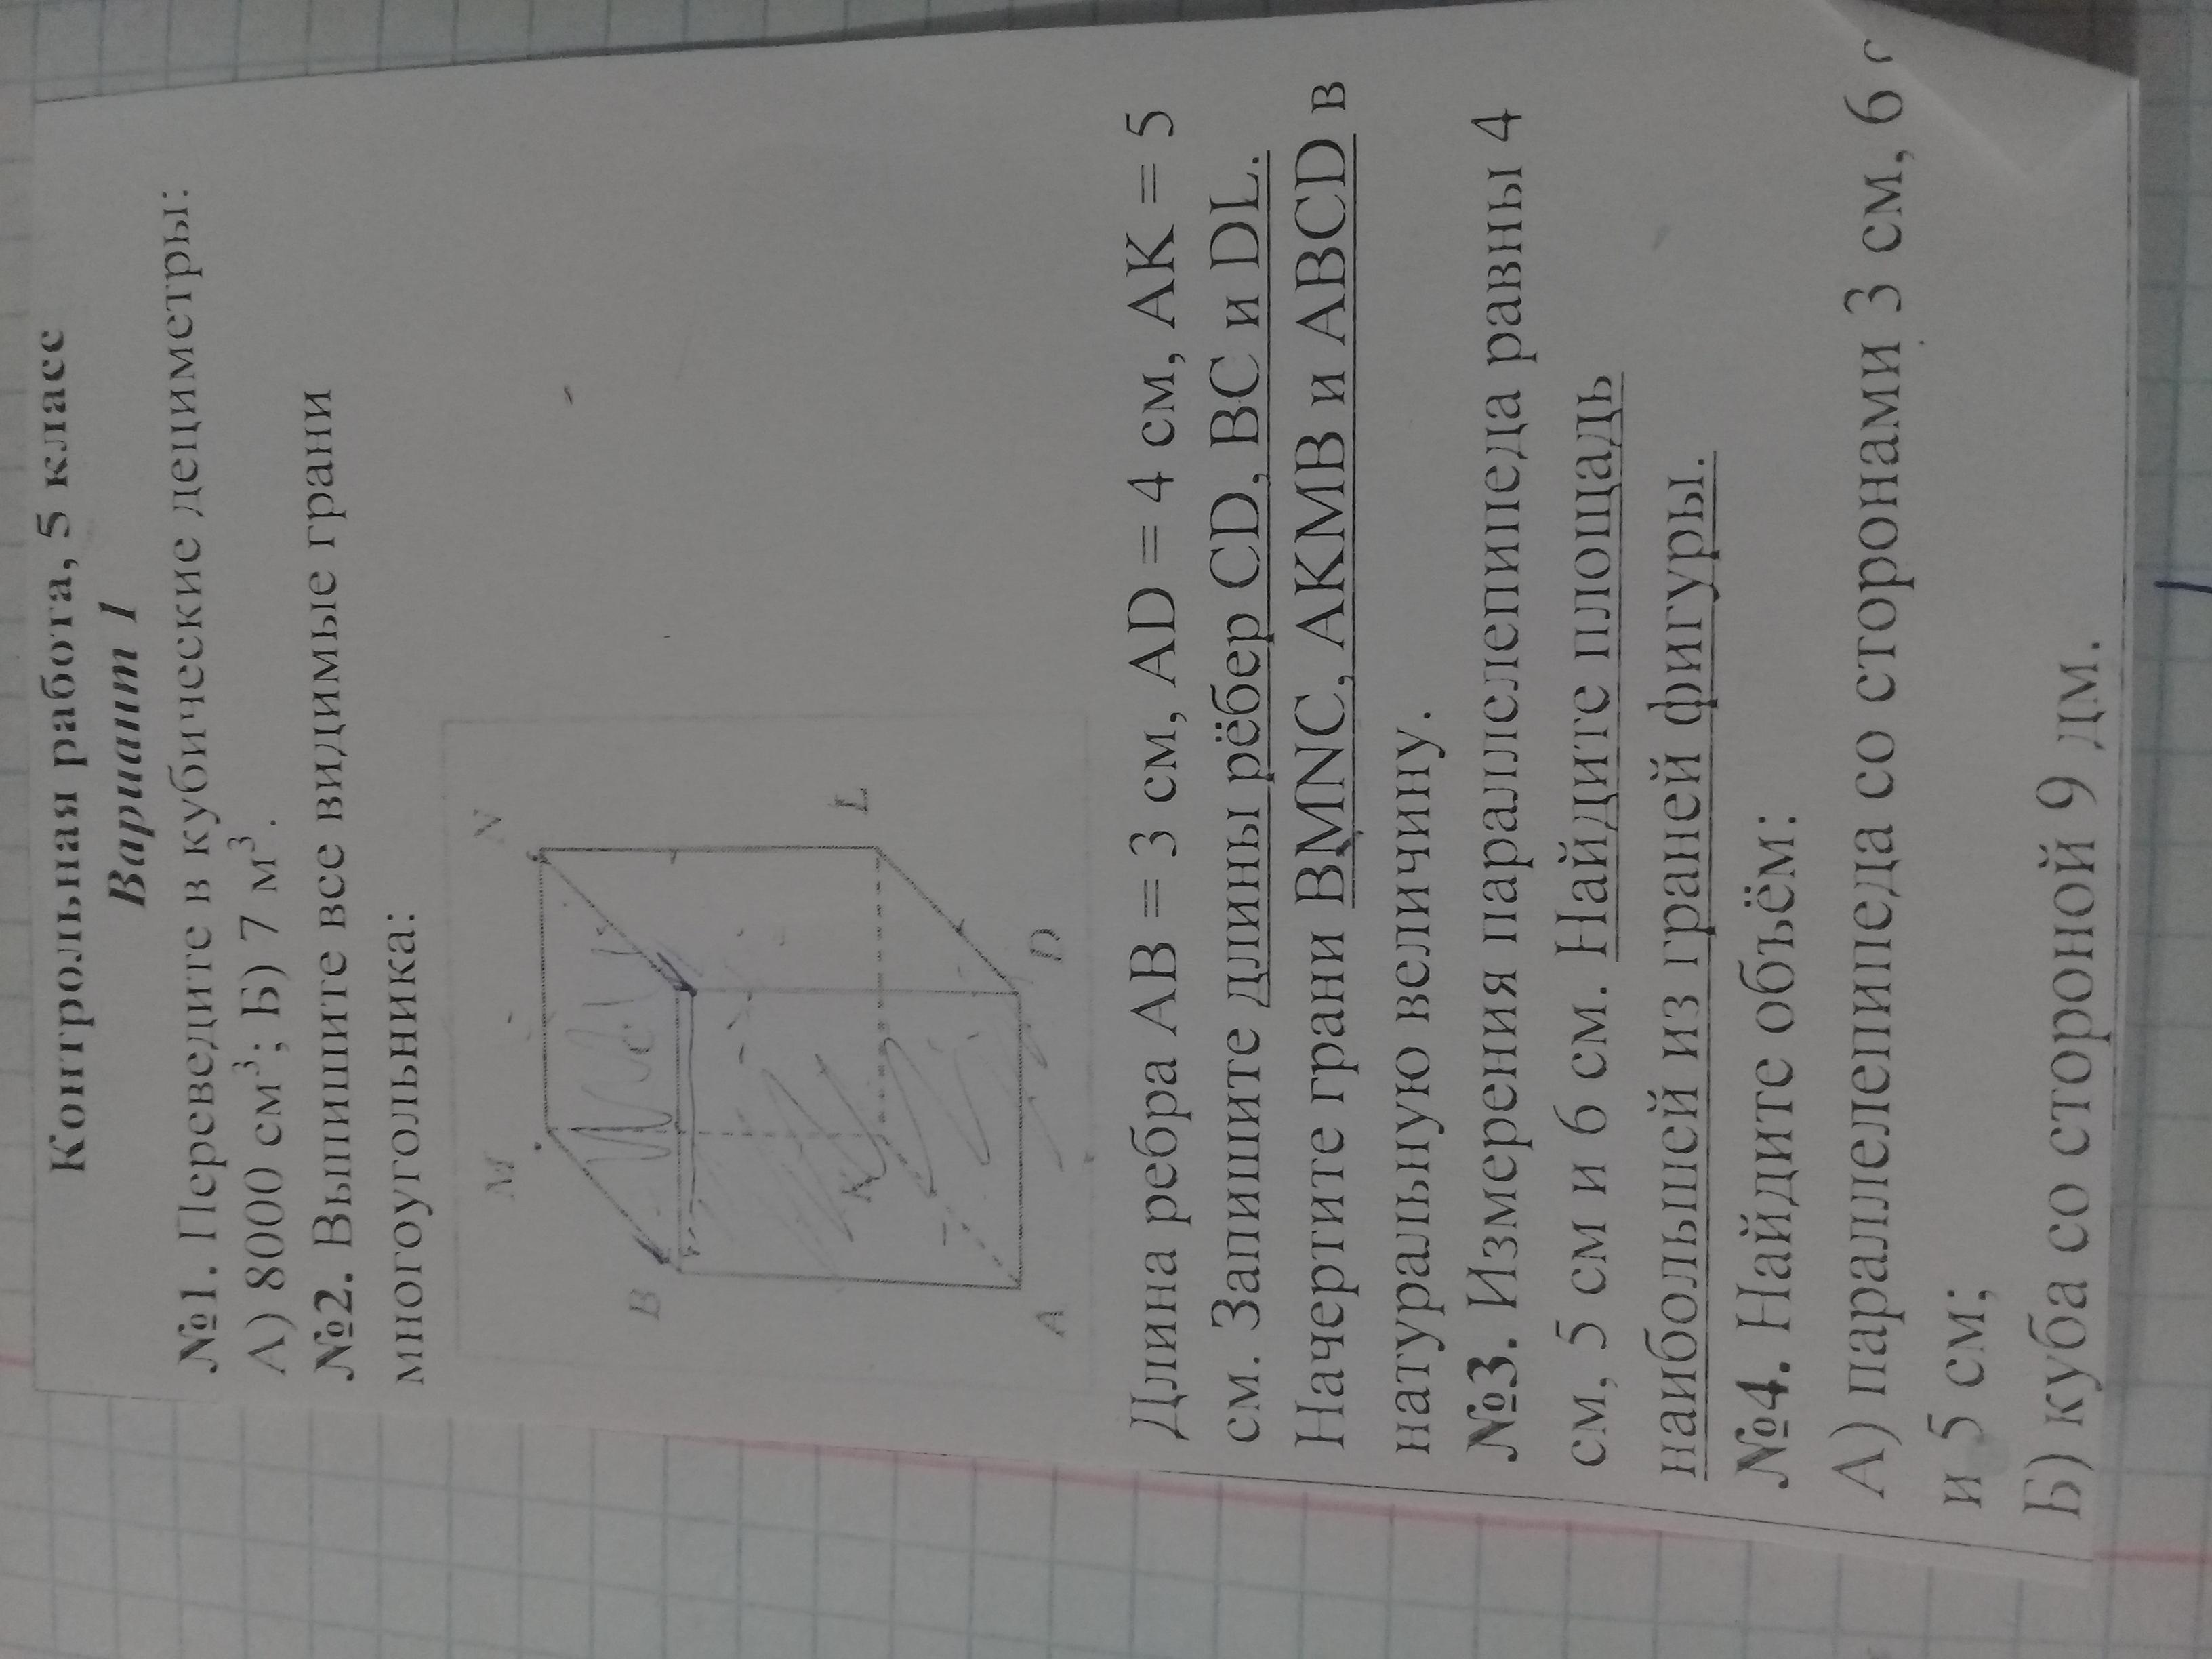 Контрольная работа, 5 класс
Вариант 1
№1. Переведите в кубические дециметры:
А) 8000 см³; Б) 7 м³.
№2. Выпишите все видимые грани
многоугольника:
M
N
B
C
K
L
A
D
Длина ребра AB = 3 см, AD = 4 см, AK = 5
см. Запишите длины рёбер CD, BC и DL.
Начертите грани BMNC, AKMB и ABCD в
натуральную величину.
№3. Измерения параллелепипеда равны 4
см, 5 см и 6 см. Найдите площадь
наибольшей из граней фигуры.
№4. Найдите объём:
А) параллелепипеда со сторонами 3 см, 6
и 5 см;
Б) куба со стороной 9 дм.